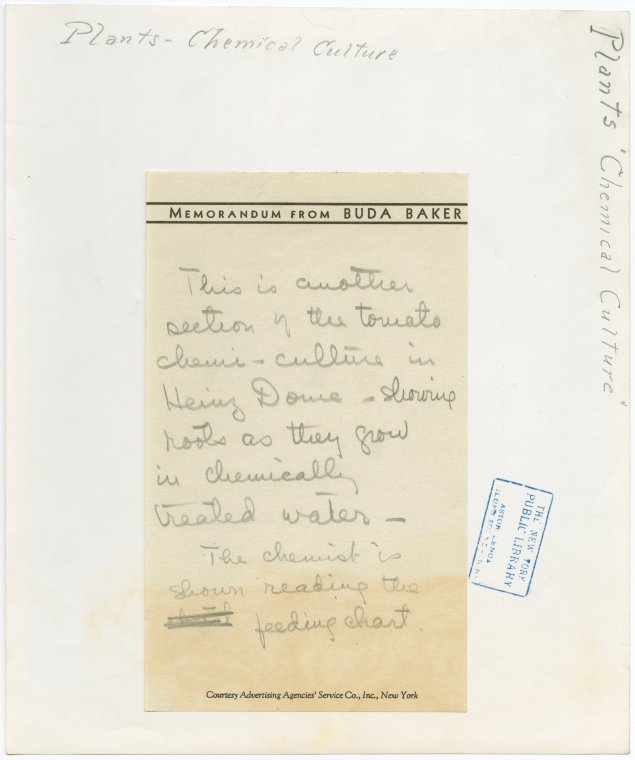 Plants - Chemical Culture
Plants "Chemical Culture"
MEMORANDUM FROM BUDA BAKER
This is another
section of the tomato
chemi-culture in
Heinz Dome - showing
roots as they grow
in chemically
treated water -
The chemist is
shown reading the
feeding chart.
THE NEW YORK
PUBLIC LIBRARY
ASTOR, LENOX
Courtesy Advertising Agencies' Service Co., Inc., New York